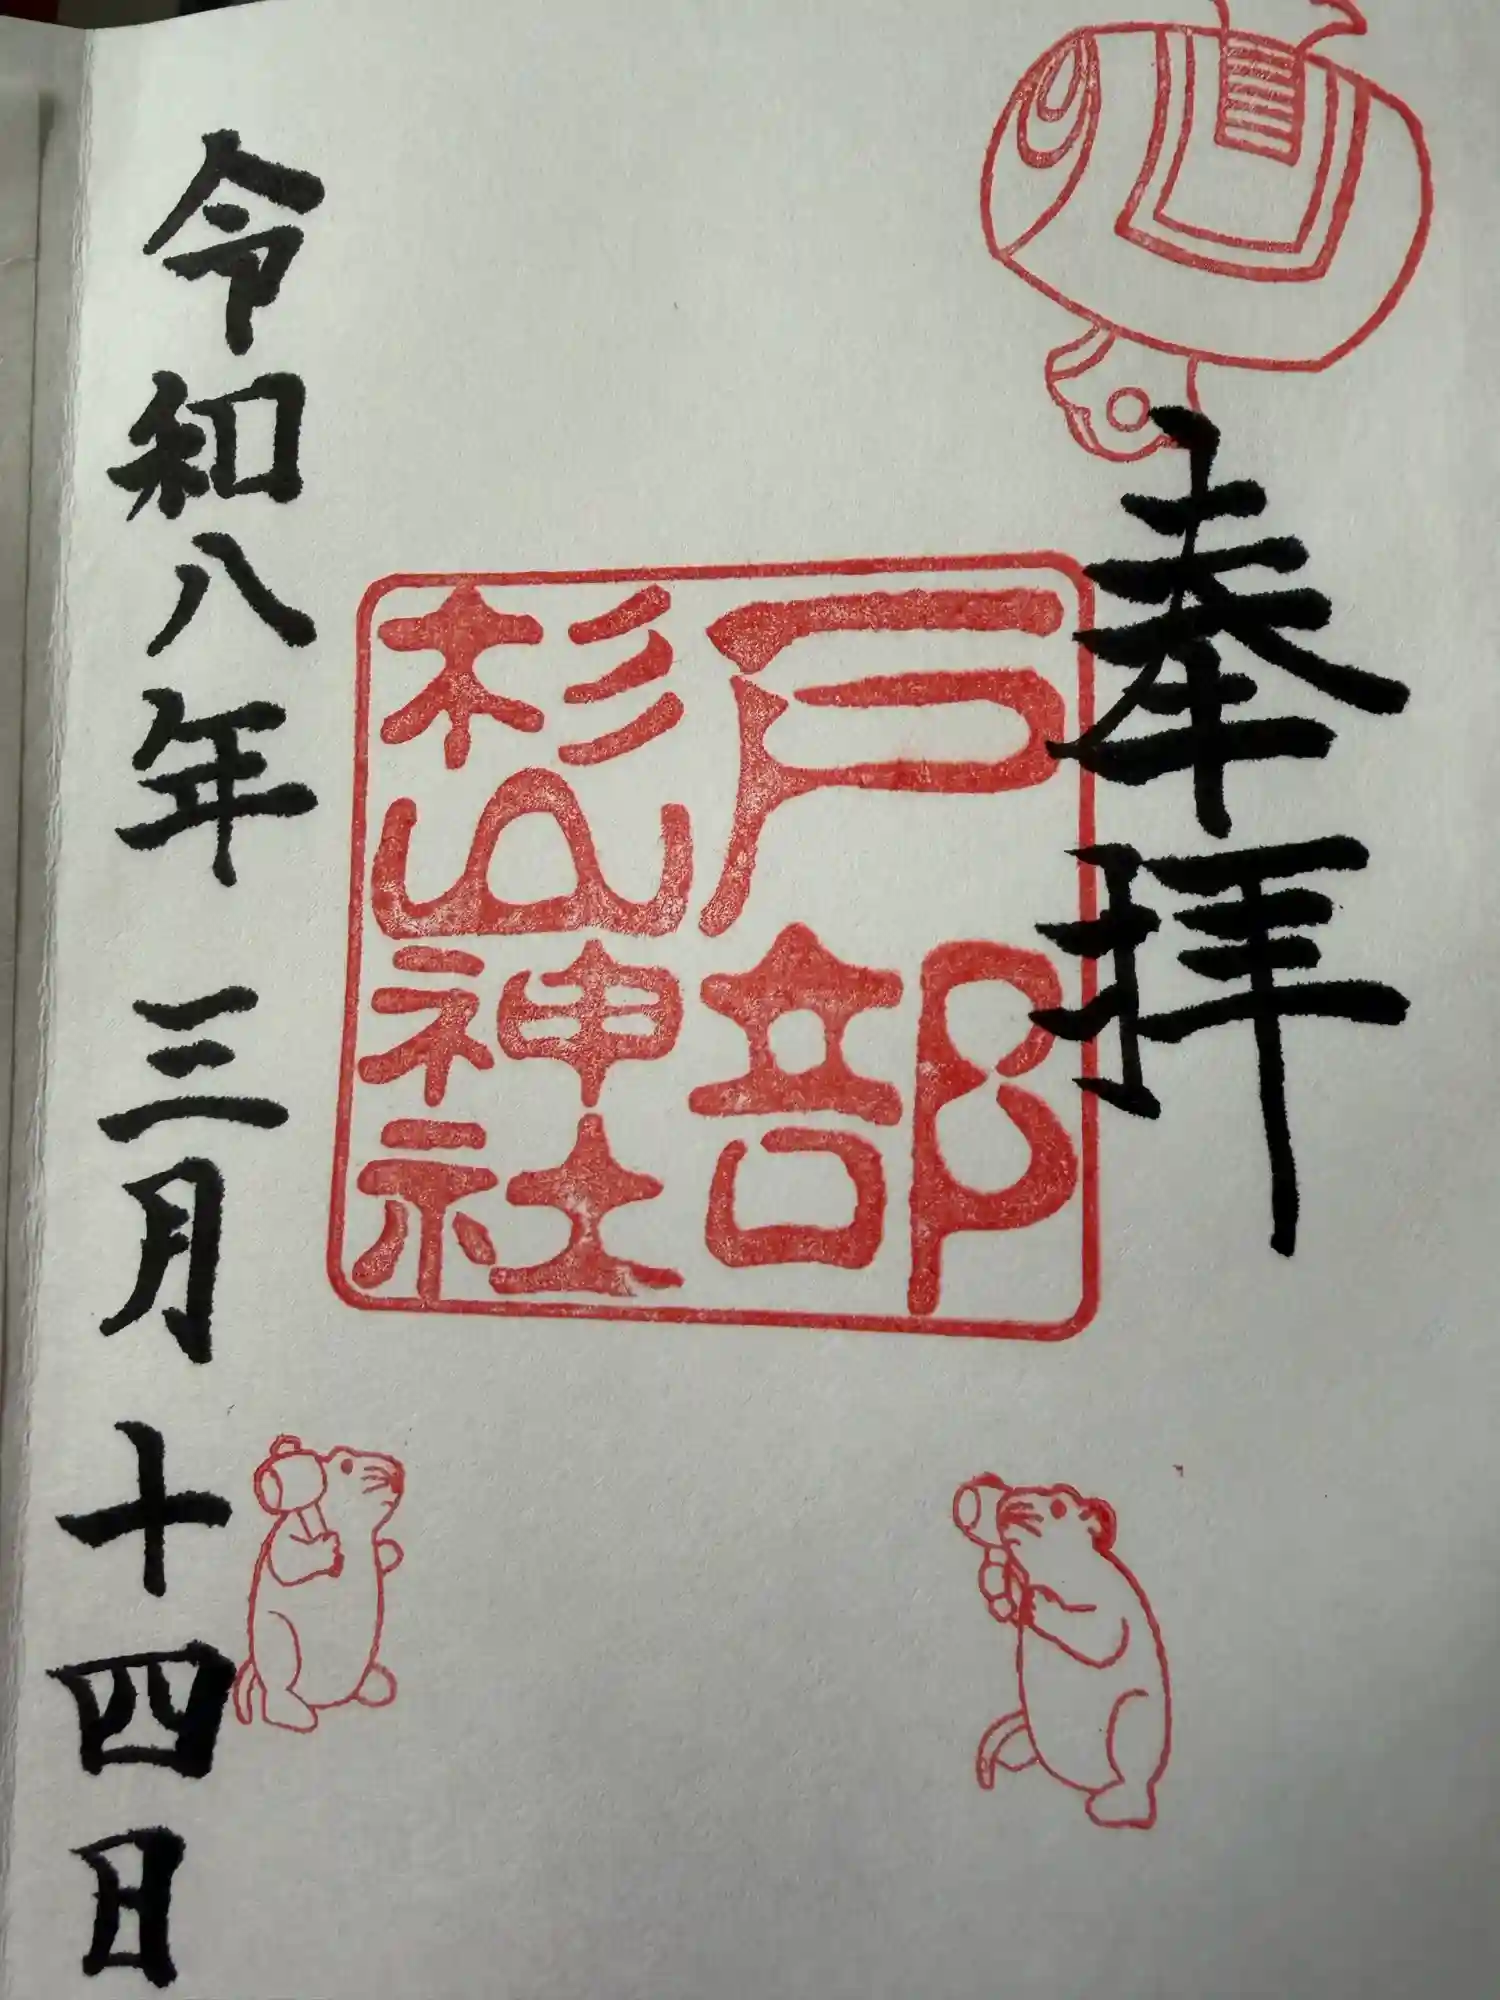 奉拝
戸部
杉山神社
令和八年三月十四日